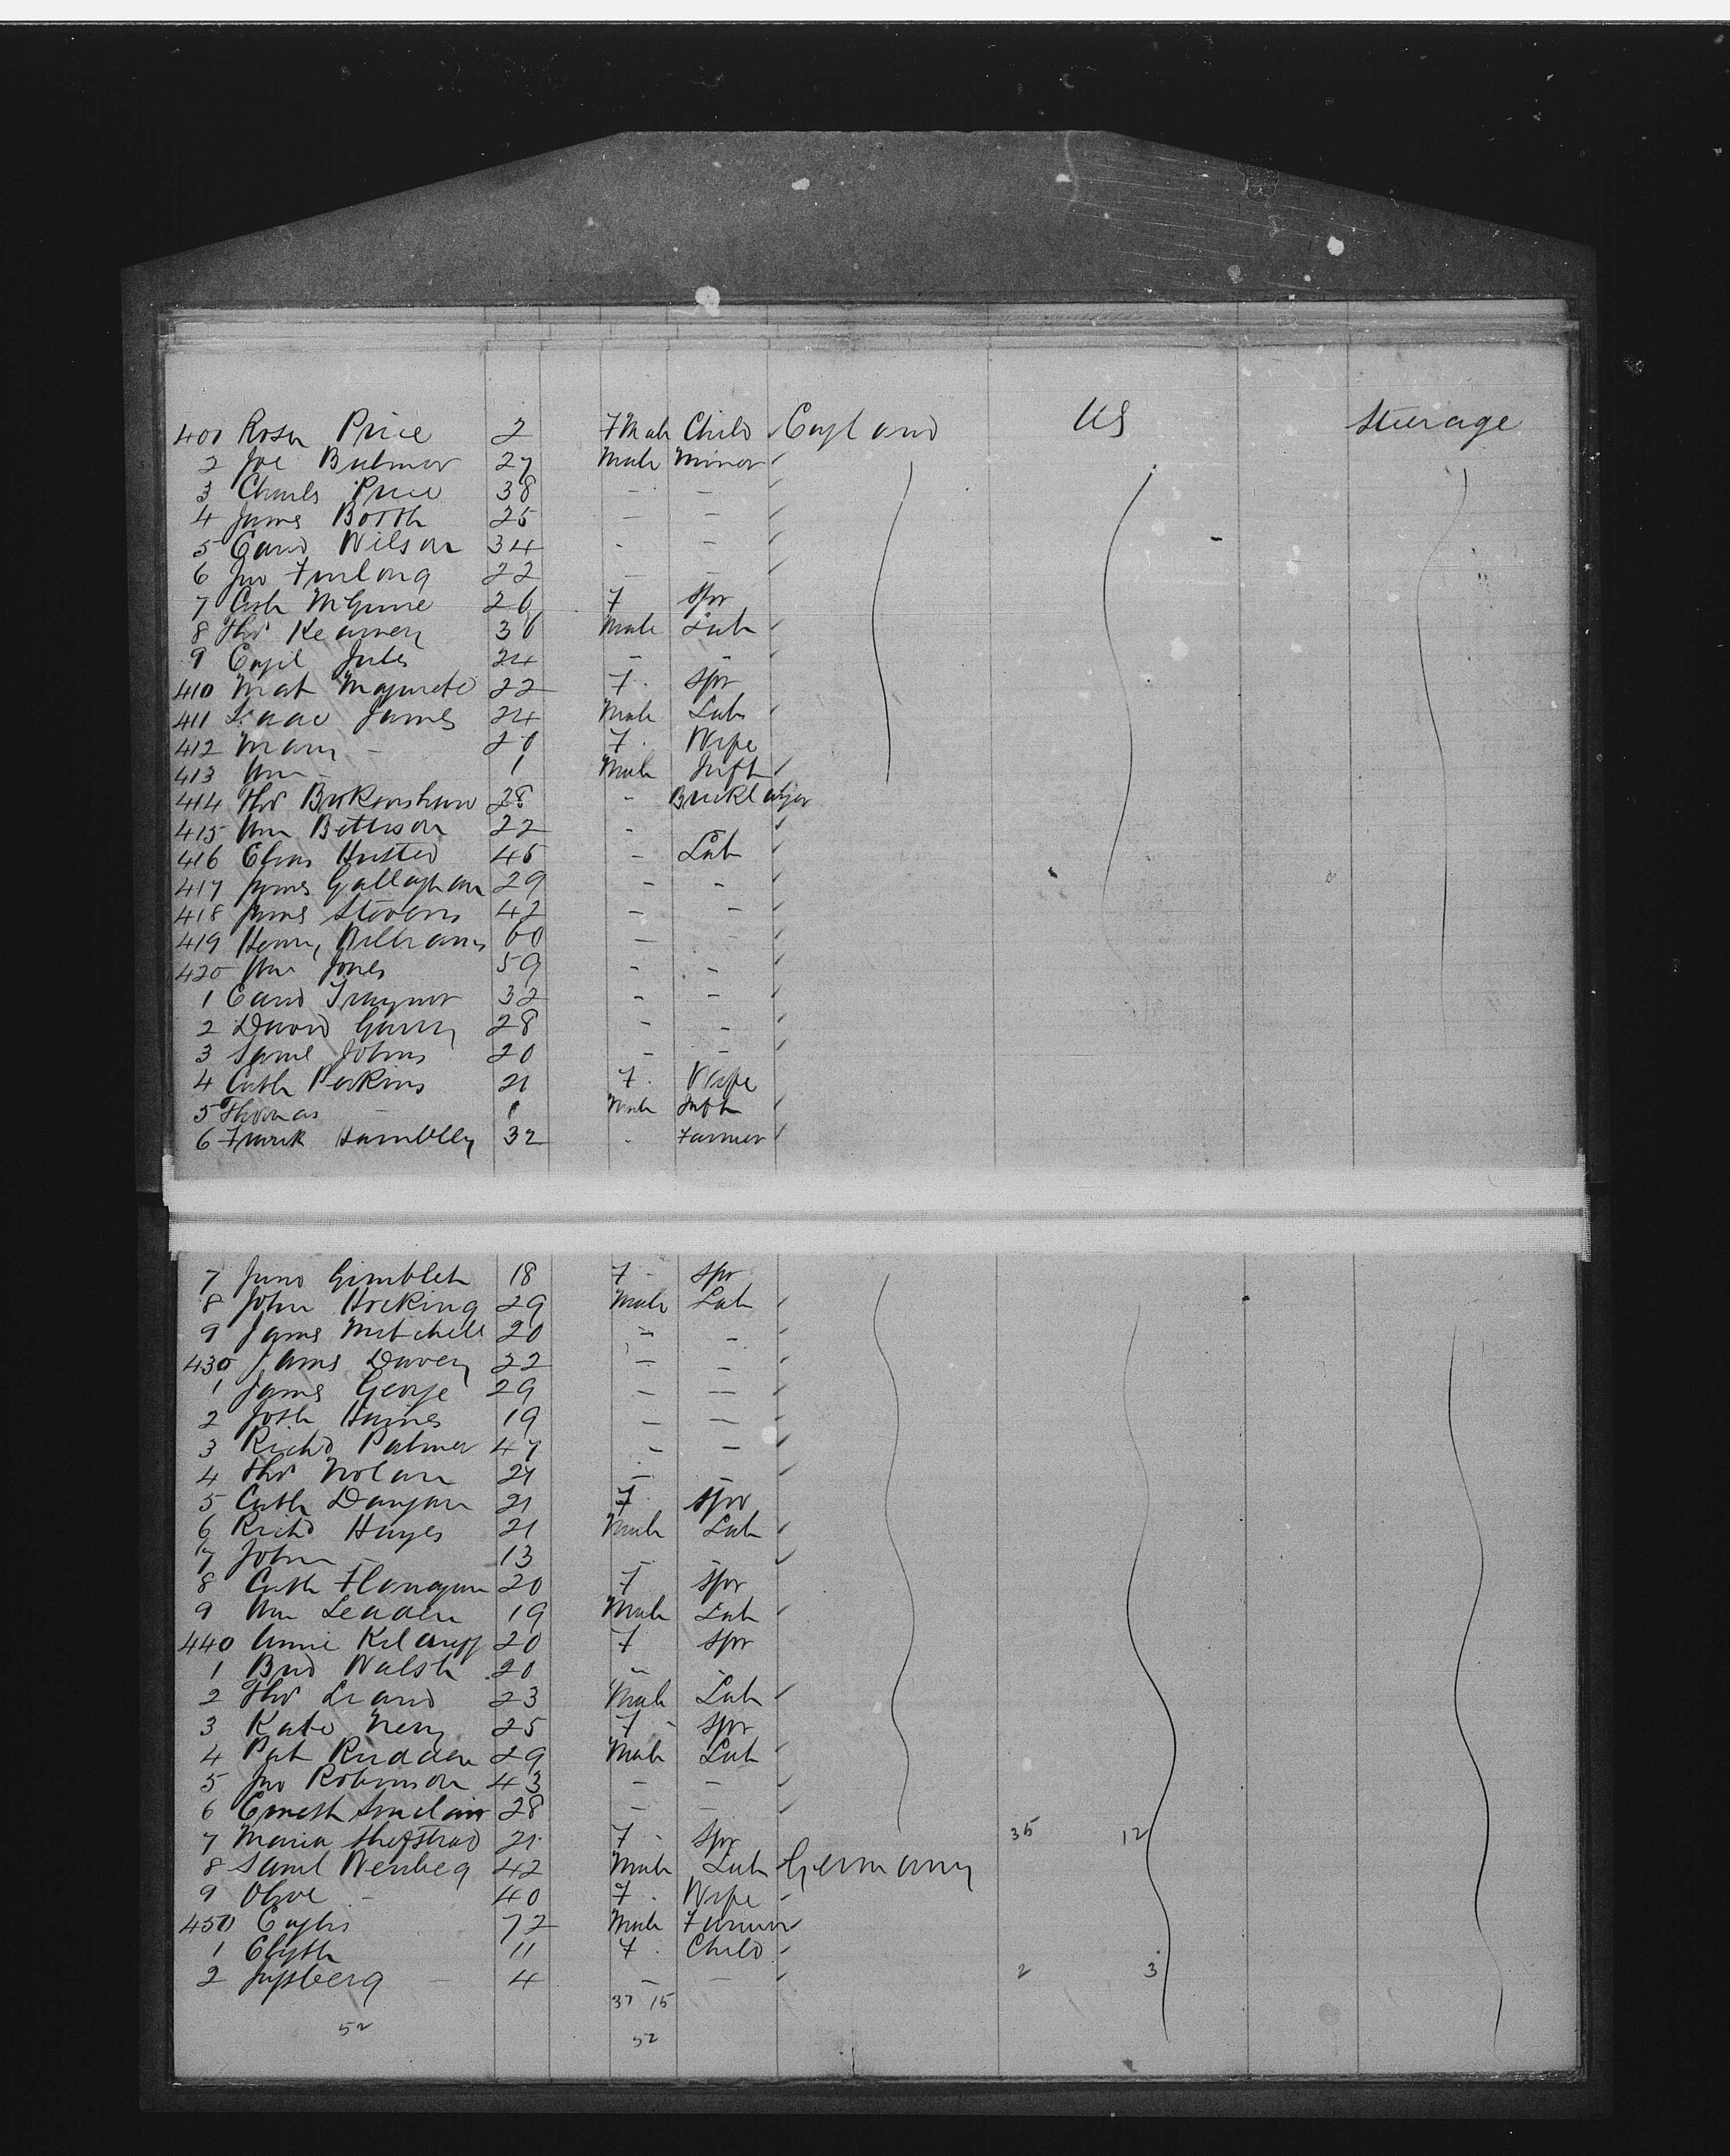 401 Rosa Price 2 Fmale Child England US Steerage
2 Joe Bulmer 27 Male Minor
3 Charls Price 38 - -
4 James Booth 25 - -
5 Edwd Wilson 34 - -
6 Jno Furlong 22 - -
7 Cath McGuire 26 F Spr
8 Thos Kearney 36 Male Lab
9 Jules 24 - -
410 Mat 22 F. Spr
411 Isaac James 24 Male Lab
412 Mary - 20 F. Wife
413 Wm - 1 Male Inft
414 Thos 28 - Bricklayer
415 Wm Bettison 22 -
416 Chas Husted 45 - Lab
417 James Gallaghan 29 - -
418 James Stevens 42 - -
419 Henry Williams 60 - -
420 Wm Jones 59 - -
1 Edwd Traynor 32 - -
2 David 28 - -
3 Saml Johns 20 - -
4 Cath Perkins 21 F. Wife
5 Thomas - 1 Male Inft
6 Frank Hamblly 32 - Farmer
7 Gimblett 18 F - Spr
8 John Hocking 29 Male Lab
9 James Mitchell 20 - -
430 James Davey 22 - -
1 James George 29 - -
2 Josh Haines 19 - -
3 Richd Palmer 47 - -
4 Thos Nolan 21 - -
5 Cath 21 F. Spr
6 Richd Hayes 21 Male Lab
7 John - 13 - -
8 Cath Flanagan 20 F Spr
9 Wm Leaden 19 Male Lab
440 Annie 20 F Spr
1 Brid Walsh 20 - -
2 Thos 23 Male Lab
3 Kate 25 F - Spr
4 Pat Rudden 29 Male Lab
5 Jno Robinson 43 - -
6 Ernest Sinclair 28 - -
7 Maria 21 F - Spr 35 12
8 Saml 42 Male Lab Germany
9 Olive - 40 F. Wife
450 72 Male Farmer
1 11 F. Child
2 - 4 - - 2 3
37 15
52 52